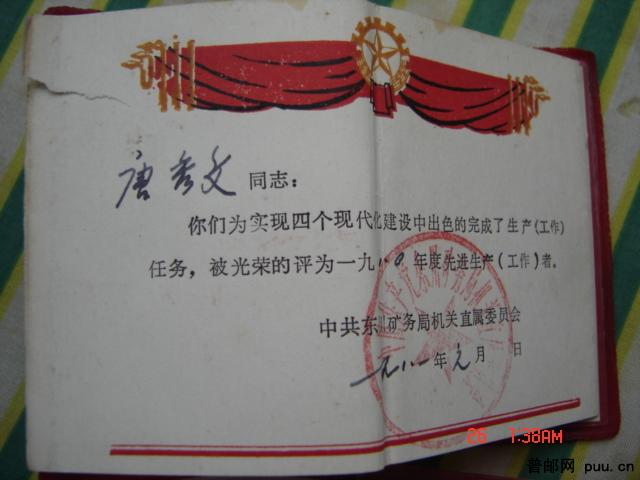 唐 文 同志：
你们为实现四个现代化建设中出色的完成了生产（工作）
任务，被光荣的评为一九八〇年度先进生产（工作）者。
中共东川矿务局机关直属委员会
一九八一年元月 日
26 1:38AM
普邮网 puu.cn